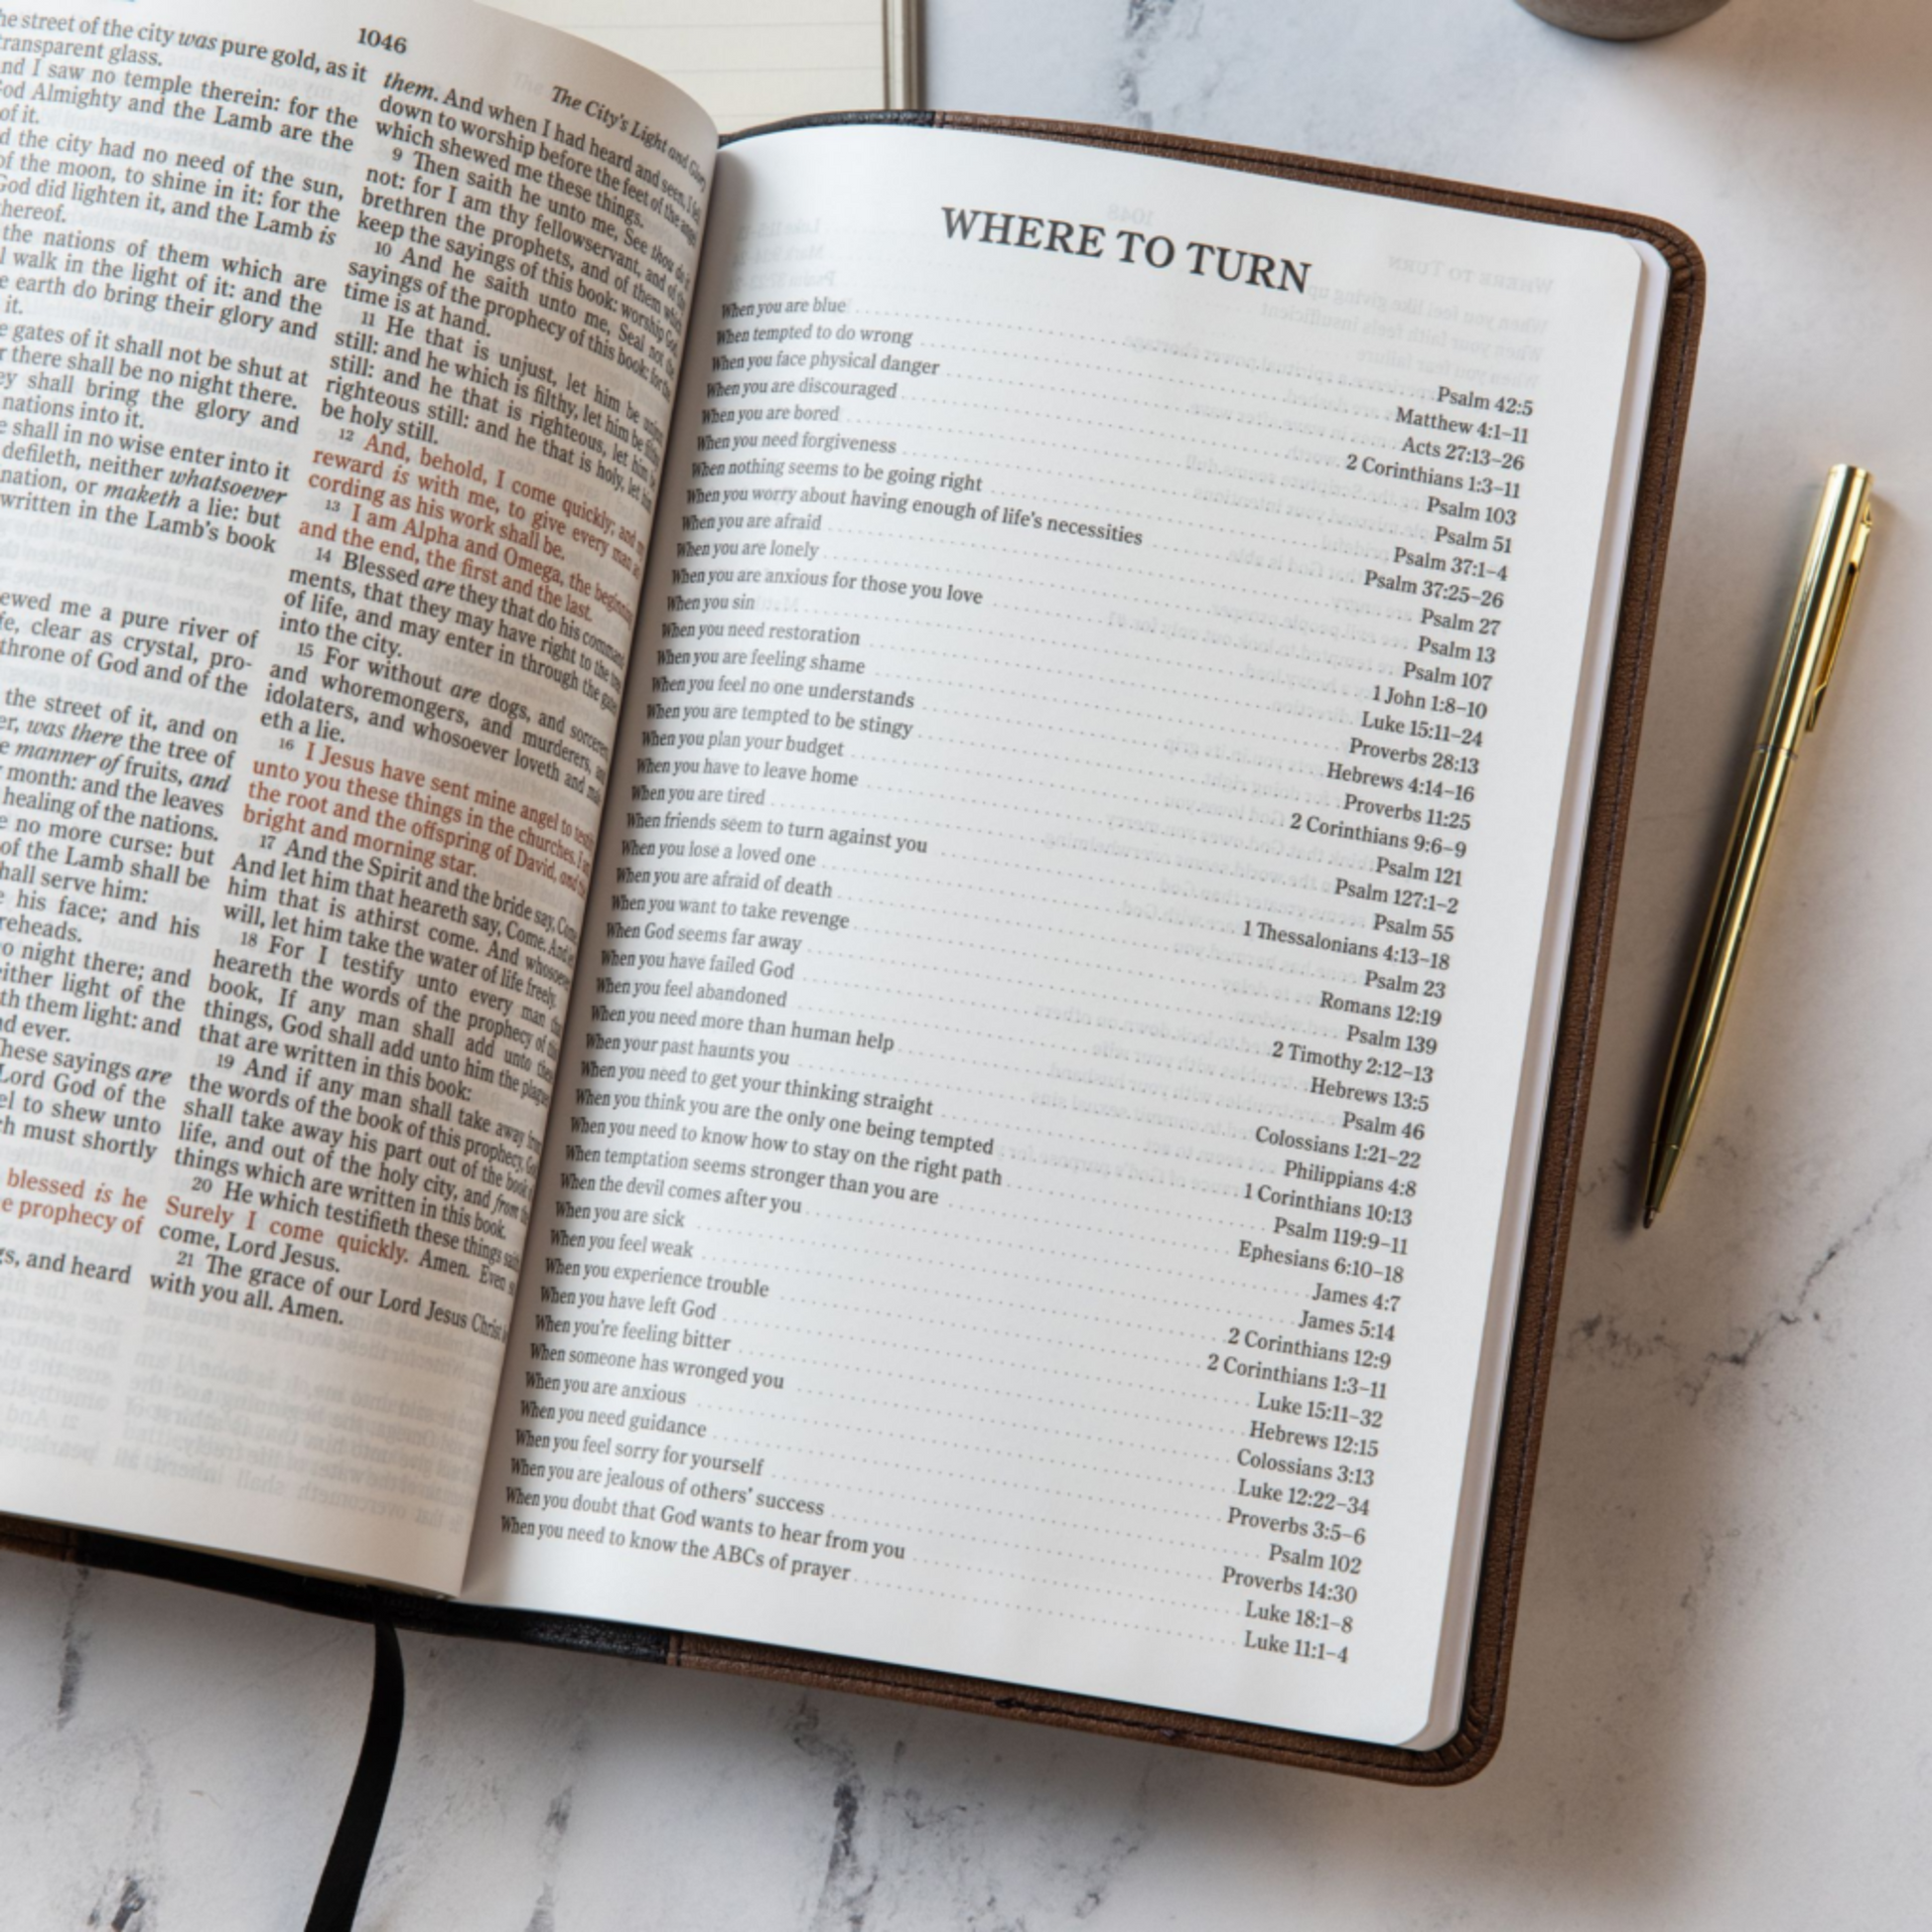 1046
The City's Light and Glory
he street of the city was pure gold, as it
transparent glass.
nd I saw no temple therein: for the
God Almighty and the Lamb are the
of it.
d the city had no need of the sun,
of the moon, to shine in it: for the
God did lighten it, and the Lamb is
hereof.
the nations of them which are
l walk in the light of it: and the
e earth do bring their glory and
it.
e gates of it shall not be shut at
r there shall be no night there.
ey shall bring the glory and
nations into it.
e shall in no wise enter into it
defileth, neither whatsoever
nation, or maketh a lie: but
written in the Lamb's book
ewed me a pure river of
fe, clear as crystal, pro-
throne of God and of the
the street of it, and on
er, was there the tree of
e manner of fruits, and
month: and the leaves
healing of the nations.
e no more curse: but
of the Lamb shall be
hall serve him:
e his face; and his
reheads.
o night there; and
either light of the
th them light: and
nd ever.
hese sayings are
Lord God of the
el to shew unto
ch must shortly
blessed is he
e prophecy of
gs, and heard
them. And when I had heard and seen, I fell
down to worship before the feet of the angel
which shewed me these things.
9 Then saith he unto me, See thou do it
not: for I am thy fellowservant, and of thy
brethren the prophets, and of them which
keep the sayings of this book: worship God.
10 And he saith unto me, Seal not the
sayings of the prophecy of this book: for the
time is at hand.
11 He that is unjust, let him be unjust
still: and he which is filthy, let him be filthy
still: and he that is righteous, let him be
righteous still: and he that is holy, let him
be holy still.
12 And, behold, I come quickly; and my
reward is with me, to give every man ac
cording as his work shall be.
13 I am Alpha and Omega, the beginning
and the end, the first and the last.
14 Blessed are they that do his command
ments, that they may have right to the tree
of life, and may enter in through the gates
into the city.
15 For without are dogs, and sorcerers,
and whoremongers, and murderers, and
idolaters, and whosoever loveth and mak
eth a lie.
16 I Jesus have sent mine angel to testify
unto you these things in the churches. I am
the root and the offspring of David, and the
bright and morning star.
17 And the Spirit and the bride say, Come.
And let him that heareth say, Come. And let
him that is athirst come. And whosoever
will, let him take the water of life freely.
18 For I testify unto every man that
heareth the words of the prophecy of this
book, If any man shall add unto these
things, God shall add unto him the plagues
that are written in this book:
19 And if any man shall take away from
the words of the book of this prophecy, God
shall take away his part out of the book of
life, and out of the holy city, and from the
things which are written in this book.
20 He which testifieth these things saith,
Surely I come quickly. Amen. Even so,
come, Lord Jesus.
21 The grace of our Lord Jesus Christ be
with you all. Amen.
WHERE TO TURN
When you are blue Psalm 42:5
When tempted to do wrong Matthew 4:1–11
When you face physical danger Acts 27:13–26
When you are discouraged 2 Corinthians 1:3–11
When you are bored Psalm 103
When you need forgiveness Psalm 51
When nothing seems to be going right Psalm 37:1–4
When you worry about having enough of life's necessities Psalm 37:25–26
When you are afraid Psalm 27
When you are lonely Psalm 13
When you are anxious for those you love Psalm 107
When you sin 1 John 1:8–10
When you need restoration Luke 15:11–24
When you are feeling shame Proverbs 28:13
When you feel no one understands Hebrews 4:14–16
When you are tempted to be stingy Proverbs 11:25
When you plan your budget 2 Corinthians 9:6–9
When you have to leave home Psalm 121
When you are tired Psalm 127:1–2
When friends seem to turn against you Psalm 55
When you lose a loved one 1 Thessalonians 4:13–18
When you are afraid of death Psalm 23
When you want to take revenge Romans 12:19
When God seems far away Psalm 139
When you have failed God 2 Timothy 2:12–13
When you feel abandoned Hebrews 13:5
When you need more than human help Psalm 46
When your past haunts you Colossians 1:21–22
When you need to get your thinking straight Philippians 4:8
When you think you are the only one being tempted 1 Corinthians 10:13
When you need to know how to stay on the right path Psalm 119:9–11
When temptation seems stronger than you are Ephesians 6:10–18
When the devil comes after you James 4:7
When you are sick James 5:14
When you feel weak 2 Corinthians 12:9
When you experience trouble 2 Corinthians 1:3–11
When you have left God Luke 15:11–32
When you're feeling bitter Hebrews 12:15
When someone has wronged you Colossians 3:13
When you are anxious Luke 12:22–34
When you need guidance Proverbs 3:5–6
When you feel sorry for yourself Psalm 102
When you are jealous of others' success Proverbs 14:30
When you doubt that God wants to hear from you Luke 18:1–8
When you need to know the ABCs of prayer Luke 11:1–4